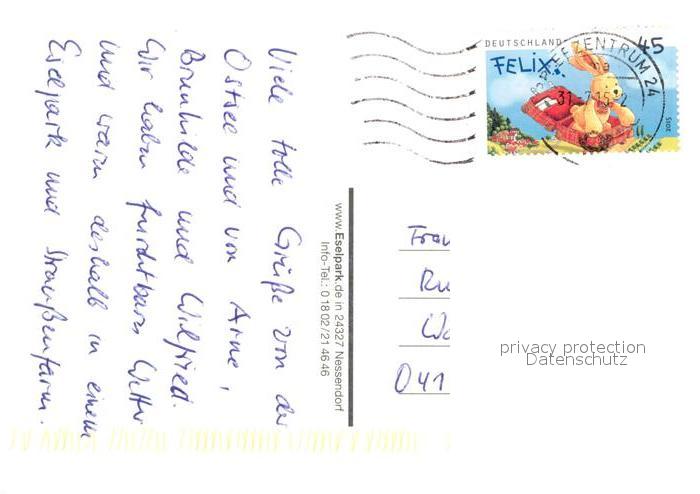 Viele tolle Grüße von der
Ostsee und von Arne,
Brunhilde und Wilfried.
Wir haben furchtbares Wetter
und waren deshalb in einem
Eselpark und Straußenfarm.
www.Eselpark.de in 24327 Nessendorf
Info-Tel.: 0 18 02/21 46 46
DEUTSCHLAND 45
FELIX
BRIEFZENTRUM 24
31.7.15
2015
Frau
Ru
041
privacy protection
Datenschutz